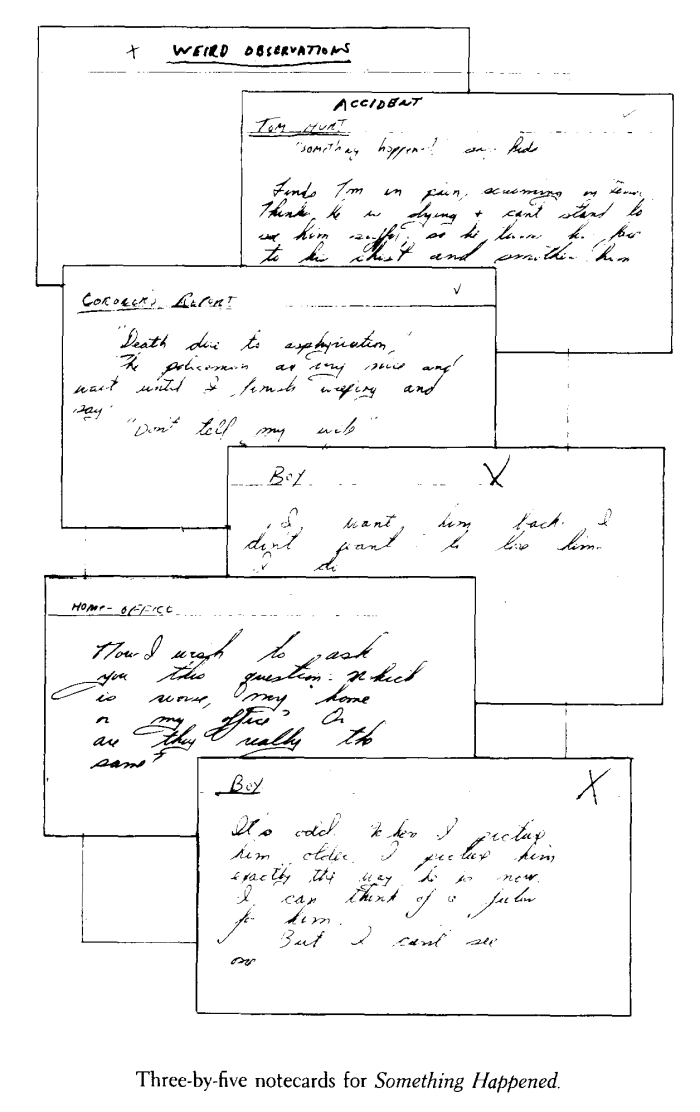 + WEIRD OBSERVATIONS
ACCIDENT ✓
TOM HURT
"something happened"
Finds I'm in pain, screaming in
Thinks he is dying + can't stand to
him so he
to his chest and smother him
CORONER'S REPORT ✓
"Death due to asphyxiation,"
The policeman are very nice and
wait until I finish weeping and
say
"Don't tell my wife"
BOY X
I want him back. I
don't want to lose him.
I do
HOME-OFFICE
Now I wish to ask
you this question: which
is worse, my home
or my office? Or
are they really the
same?
BOY X
It's odd. When I picture
him older, I picture him
exactly the way he is now.
I can think of a future
for him.
But I can't see
one
Three-by-five notecards for Something Happened.